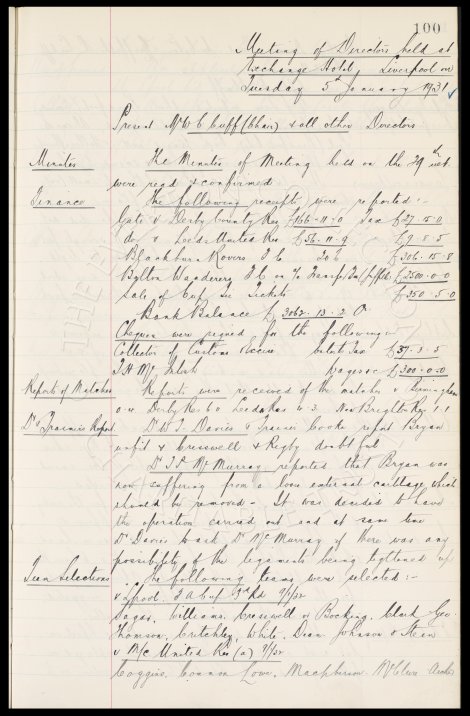 100
Meeting of Directors held at
Exchange Hotel, Liverpool on
Tuesday 5th January 1931
Present Mr W C Cuff (Chair) & all other Directors
Minutes The Minutes of Meeting held on the 29th ult
were read & confirmed
Finance The following receipts were reported :-
Gate v Derby County Res £166-11-0 Tax £27-5-0
do v Leeds United Res £56-11-9 £9-8-5
Blackburn Rovers F C £306-15-8
Bolton Wanderers F C on a/c Transfer £2500-0-0
Sale of Cup Tie Tickets £350-5-0
Bank Balance £3062-13-2 Or
Cheques were signed for the following :-
Collector of Customs Excise Tax £37-3-5
T H McIntosh Wages &c £300-0-0
Reports of Matches Reports were received of the matches v Birmingham
Derby Res 6-0 Leeds Res 4-3 New Brighton Res 1-1
Dr & Trainers Report Dr W J Davies & Trainer Cooke report Bryan
unfit & Cresswell & Rigby doubtful
Dr T P McMurray reported that Bryan was
now suffering from a loose external cartilage, which
should be removed - It was decided to have
the operation carried out and at same time
Dr Davies to ask Dr McMurray if there was any
possibility of the ligaments being tightened up
Team Selections The following teams were selected :-
v L'pool. F A Cup 3rd Rd 9/1/32
Sagar, Williams, Cresswell or Bocking, Clark Geo
Thomson, Critchley, White, Dean Johnson & Stein
v M/c United Res (a) 9/1/32
Coggins, Common Lowe, Macpherson McClure Archer